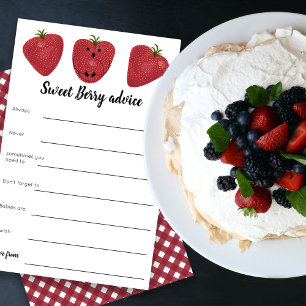 Sweet Berry advice
Always
Never
Sometimes you
need to
Don't forget to
Babies are
wish
from